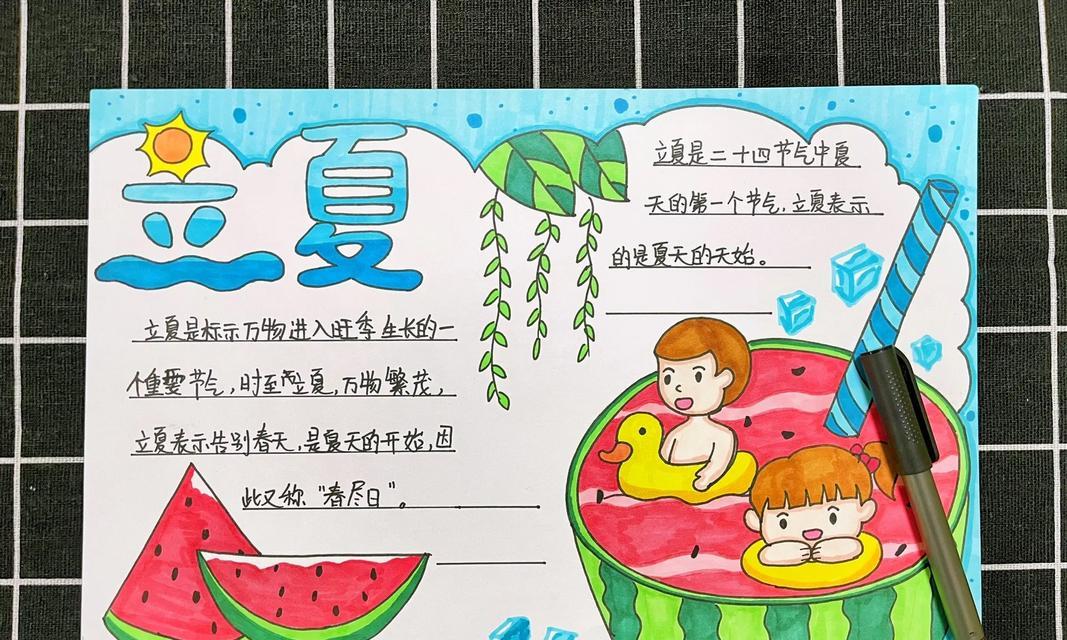 立夏
立夏是标示万物进入旺季生长的一
个重要节气，时至立夏，万物繁茂，
立夏表示告别春天，是夏天的开始，因
此又称“春尽日”。
立夏是二十四节气中夏
天的第一个节气，立夏表示
的是夏天的天始。